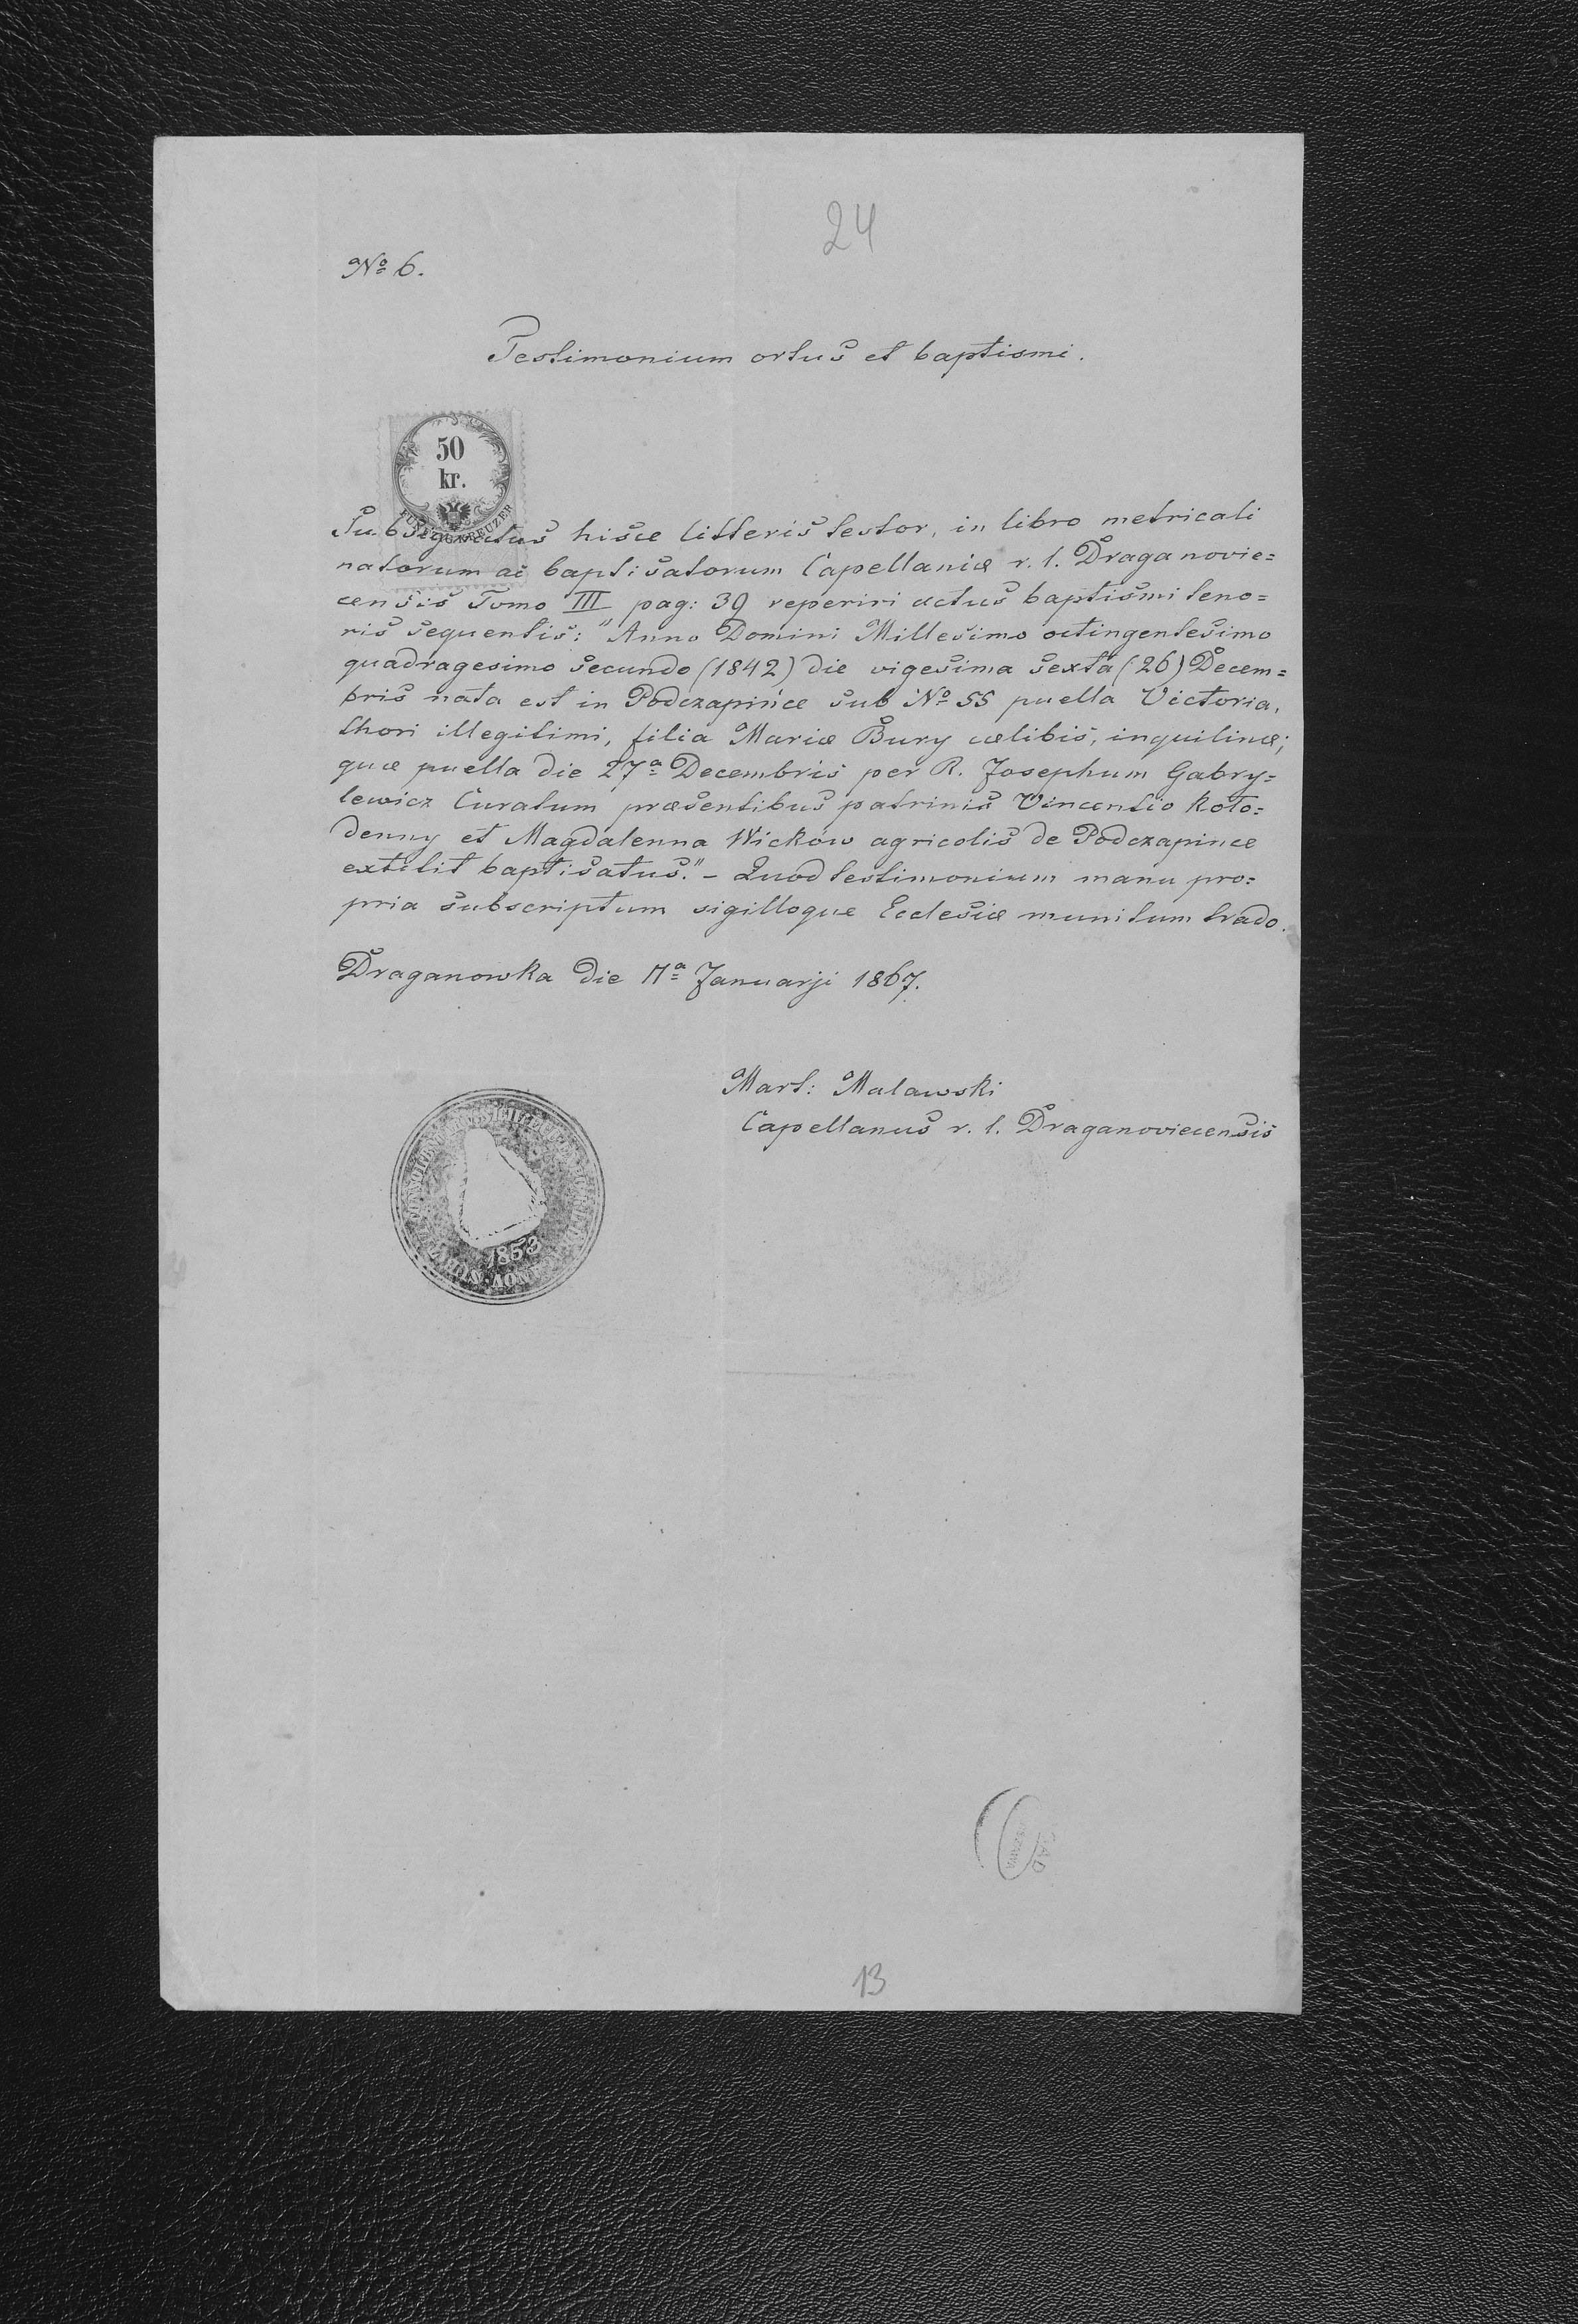 24
№ 6.
Testimonium ortus et baptismi.
50
kr.
FÜNFZIG KREUZER
Subsignatus hisce litteris testor, in libro metricali
natorum ac baptisatorum Capellaniæ r. l. Draganovie=
censis Tomo III pag: 39 reperiri actus baptismi teno=
ris sequentis: "Anno Domini Millesimo octingentesimo
quadragesimo secundo (1842) die vigesima sexta (26) Decem=
bris nata est in Podczapińce sub № 55 puella Victoria,
thori illegitimi, filia Mariæ Bury cælibis, inquilinæ;
quæ puella die 27ª Decembris per R. Josephum Gabry=
lewicz Curatum præsentibus patrinis Vincentio Koło=
denny et Magdalenna Wicków agricolis de Podczapince
extitit baptisatus." – Quod testimonium manu pro=
pria subscriptum sigilloque Ecclesiæ munitum trado.
Draganowka die 17ª Januarji 1867.
Mart: Malawski
Capellanus r. l. Draganoviecensis
1853
13